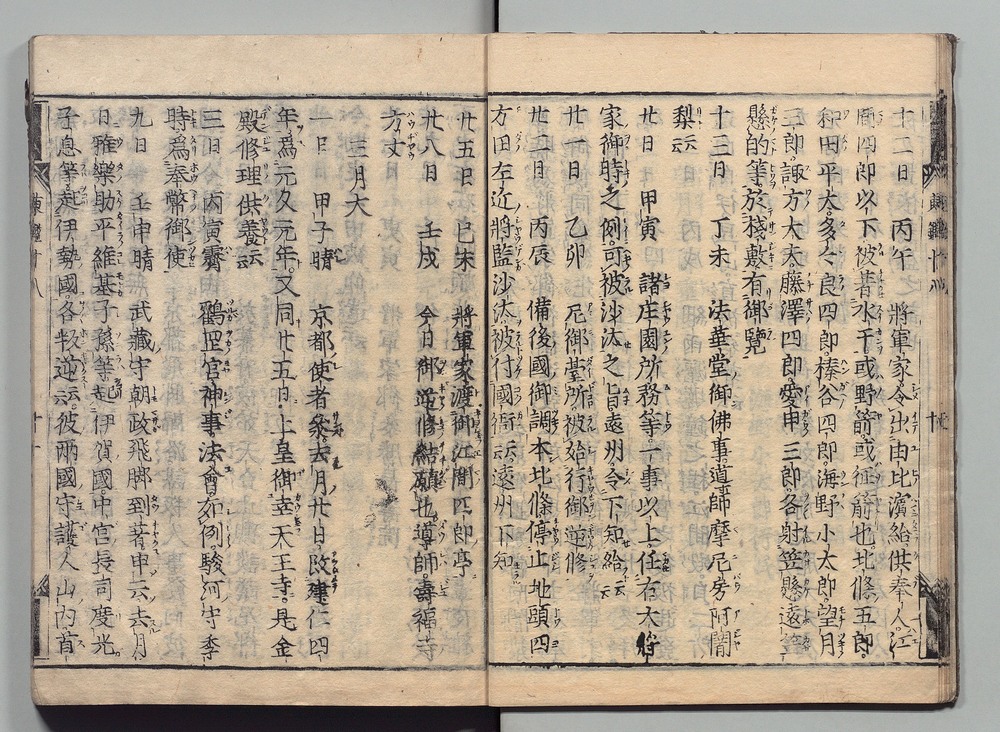 十二日 丙午 將軍家令出由比濱給供奉人江
間四郎以下被着水干或野箭或征箭也北條五郎
和田平太多々良四郎榛谷四郎海野小太郎望月
三郎諏方大夫藤澤四郎愛甲三郎各射笠懸遠笠
懸的等於棧敷有御覽
十三日 丁未 法華堂御佛事導師摩尼房阿闍
梨云云
廿日 甲寅 諸庄園所務等一事以上任右大將
家御時之例可被沙汰之旨遠州令下知給云云
廿一日 乙卯 尼御臺所被始行御逆修
廿二日 丙辰 備後國御調本北條停止地頭四
方田左近將監沙汰被付國衙云云遠州下知
廿五日 己未 將軍家渡御江間四郎亭
廿八日 壬戌 今日御逆修結願也導師壽福寺
方丈
三月大
一日 甲子晴 京都使者參去月廿日改建仁四
年爲元久元年又同廿五日上皇御幸天王寺是金
殿修理供養云云
三日 丙寅霽 鶴岳宮神事法會如例駿河守季
時爲奉幣御使
九日 壬申晴 武藏守朝政飛脚到著申云去月
日雅樂助平維基子孫等起伊賀國中宮長司度光
子息等起伊勢國各叛逆云云彼兩國守護人山內首
東鑑十八 十一